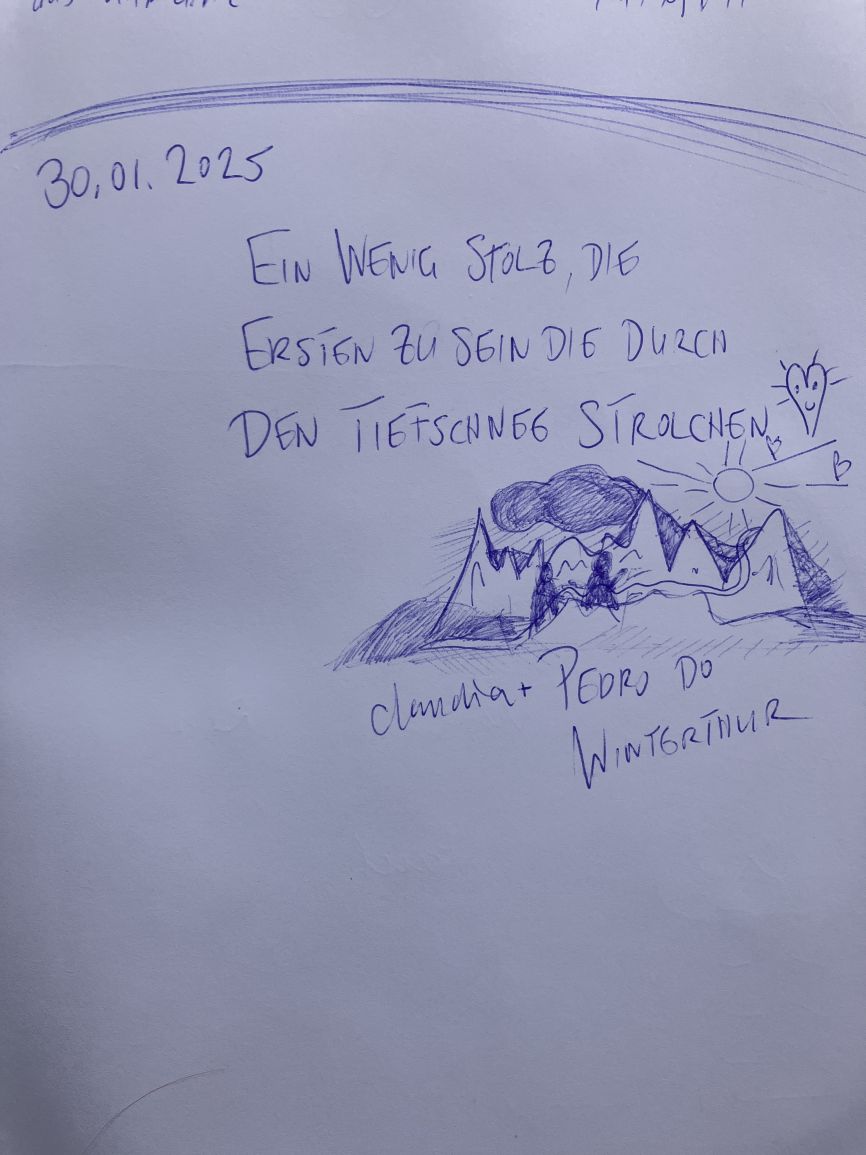 30.01.2025
EIN WENIG STOLZ, DIE
ERSTEN ZU SEIN DIE DURCH
DEN TIEFSCHNEE STROLCHEN
claudia + PEDRO DO
WINTERTHUR